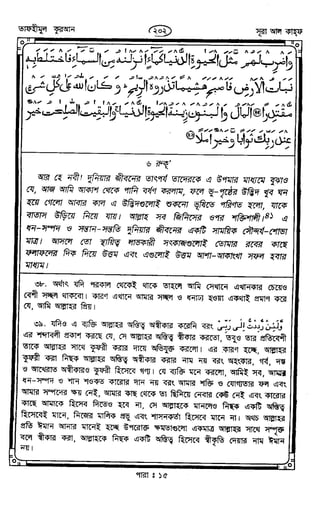 তাফহীমুল কুরআন
২০২
সূরা আল কাহফ
وَاضْرِبْ لَهُمْ مَّثَلَ الْحَيٰوةِ الدُّنْيَا كَمَآءٍ اَنْزَلْنٰهُ مِنَ السَّمَآءِ فَاخْتَلَطَ بِهٖ
نَبَاتُ الْاَرْضِ فَاَصْبَحَ هَشِيْمًا تَذْرُوْهُ الرِّيٰحُ ۗ وَكَانَ اللّٰهُ عَلٰى كُلِّ شَيْءٍ
مُّقْتَدِرًا اَلْمَالُ وَالْبَنُوْنَ زِيْنَةُ الْحَيٰوةِ الدُّنْيَا ۚ وَالْبٰقِيٰتُ الصّٰلِحٰتُ خَيْرٌ
عِنْدَ رَبِّكَ ثَوَابًا وَّخَيْرٌ اَمَلًا
৬ রুকূ’
আর হে নবী! দুনিয়ার জীবনের তাৎপর্য তাদেরকে এ উপমার মাধ্যমে বুঝাও
যে, আজ আমি আকাশ থেকে পানি বর্ষণ করলাম, ফলে ভূ-পৃষ্ঠের উদ্ভিদ খুব ঘন
হয়ে গেলো আবার কাল এ উদ্ভিদগুলোই শুকনো ভূষিতে পরিণত হলো, যাকে
বাতাস উড়িয়ে নিয়ে যায়। আল্লাহ সব জিনিসের ওপর শক্তিশালী।৪১ এ
ধন-সম্পদ ও সন্তান-সন্ততি দুনিয়ার জীবনের একটি সাময়িক সৌন্দর্য-শোভা
মাত্র। আসলে তো স্থায়িত্ব লাভকারী সৎকাজগুলোই তোমার রবের কাছে
ফলাফলের দিক দিয়ে উত্তম এবং এগুলোই উত্তম আশা-আকাংখা সফল হবার
মাধ্যম।
৩৮. অর্থাৎ যদি পরকাল থেকেই থাকে তাহলে আমি সেখানে এখানকার চেয়েও
বেশী সচ্ছল থাকবো। কারণ এখানে আমার সচ্ছল ও ধনাঢ্য হওয়া একথাই প্রমাণ করে
যে, আমি আল্লাহর প্রিয়।
৩৯. যদিও এ ব্যক্তি আল্লাহর অস্তিত্ব অস্বীকার করেনি বরং وَلَئِنْ رُدِدْتُ اِلٰى رَبِّىْ
এর শব্দাবলী প্রকাশ করছে যে, সে আল্লাহর অস্তিত্ব স্বীকার করতো, তবুও তার প্রতিবেশী
তাকে আল্লাহর সাথে কুফরী করার দায়ে অভিযুক্ত করলো। এর কারণ হচ্ছে, আল্লাহর
কুফরী করা নিছক আল্লাহর অস্তিত্ব অস্বীকার করার নাম নয় বরং অহংকার, গর্ব, দম্ভ
ও আখেরাত অস্বীকারও কুফরী হিসেবে গণ্য। যে ব্যক্তি মনে করলো, আমিই সব, আমার
ধন-সম্পদ ও শান শওকত কারোর দান নয় বরং আমার শক্তি ও যোগ্যতার ফল এবং
আমার সম্পদের ক্ষয় নেই, আমার কাছ থেকে তা ছিনিয়ে নেবার কেউ নেই এবং কারোর
কাছে আমাকে হিসেব দিতেও হবে না, সে আল্লাহকে মানলেও নিছক একটি অস্তিত্ব
হিসেবেই মানে, নিজের মালিক প্রভু এবং শাসনকর্তা হিসেবে মানে না। অথচ আল্লাহর
প্রতি ঈমান আনার মানেই হচ্ছে উপরোক্ত ক্ষমতাগুলো একমাত্র আল্লাহর সাথে সম্পৃক্ত
বলে স্বীকার করা, আল্লাহকে নিছক একটি অস্তিত্ব হিসেবে স্বীকৃতি দেয়ার নাম ঈমান
নয়।
পারা : ১৫